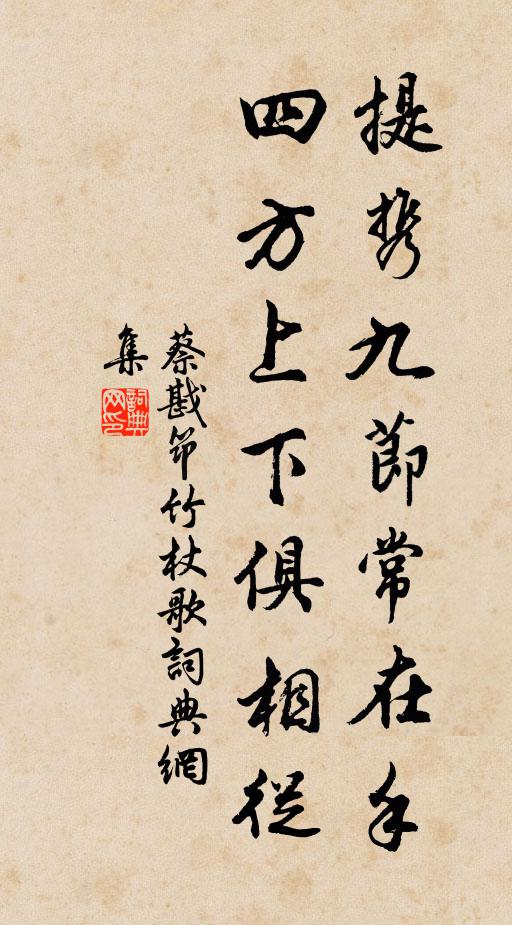 提携九節常在手
四方上下俱相從
蔡戡笻竹杖歌詞典網
集
詞典
网印